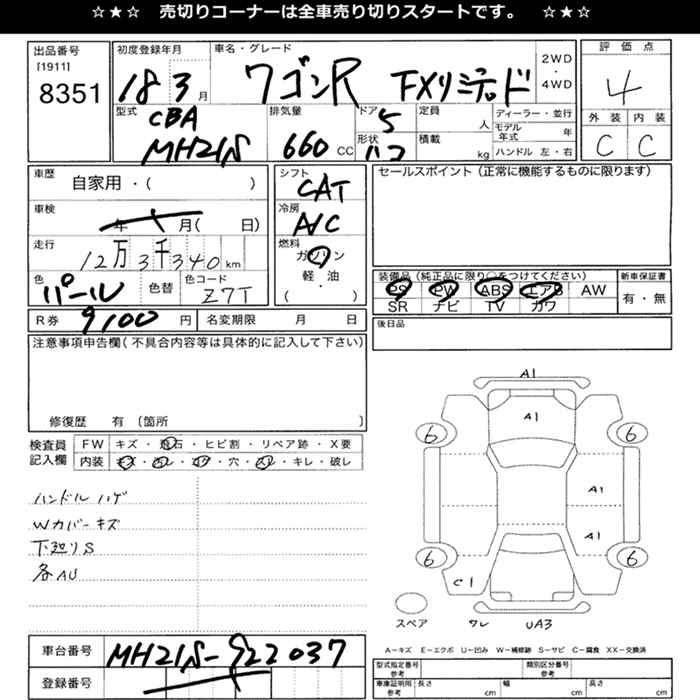 ☆★☆ 売切りコーナーは全車売り切りスタートです。 ☆★☆
出品番号
[1911]
8351
初度登録年月
18 3 月
車名・グレード
ワゴンR FXリミテッド
2WD
・
4WD
評価点
4
外装 内装
C C
型式
CBA
MH21S
排気量
660 CC
ドア 5
形状
ハコ
定員
人
積載
kg
ディーラー・並行
モデル年式 年
ハンドル 左・右
車歴
自家用・( )
車検
年 月( 日)
走行
12万3千340 km
色
パール
色替
色コード
Z7T
シフト
CAT
冷房
A/C
燃料
ガソリン
軽・油
( )
セールスポイント(正常に機能するものに限ります)
装備品(純正品に限り○をつけてください)
PS PW ABS エアB AW
SR ナビ TV カワ
新車保証書
有・無
R券 9,100 円
名変期限 月 日
後日品
注意事項申告欄(不具合内容等は具体的に記入して下さい)
修復歴 有 〔箇所 〕
検査員
記入欄
FW キズ・飛石・ヒビ割・リペア跡・X要
内装 キズ・汚レ・コゲ・穴・スレ・キレ・破レ
ハンドルハゲ
Wカバーキズ
下廻りS
各AU
A1
A1
6 6
A1
A1
6 6
C1
スペア
ワレ UA3
車台番号 MH21S-922037
登録番号
A－キズ E－エクボ U－凹み W－補修跡 S－サビ C－腐食 XX－交換済
型式指定番号
参考
類別区分番号
参考
車庫証明用
参考
長さ cm 幅 cm 高さ cm